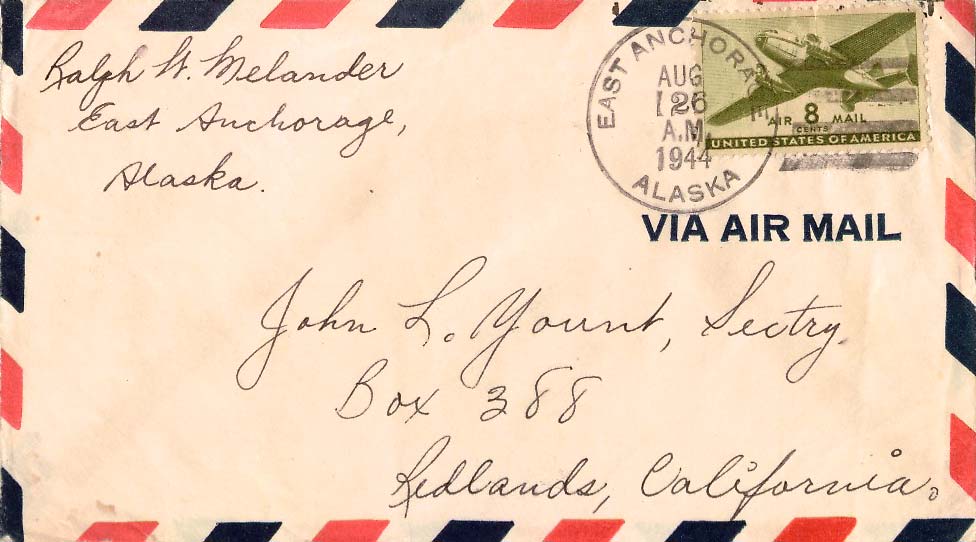 Ralph W. Melander
East Anchorage,
Alaska.
EAST ANCHORAGE
AUG
26
A.M.
1944
ALASKA
AIR 8 MAIL
CENTS
UNITED STATES OF AMERICA
VIA AIR MAIL
John L. Yount, Sectry
Box 388
Redlands, California.